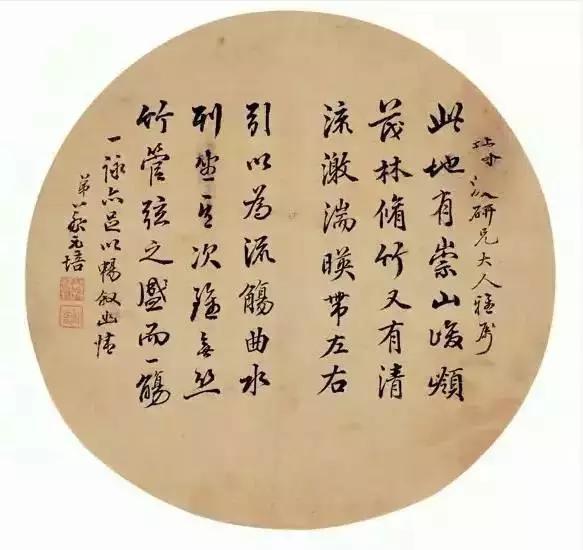 研兄大人雅屬
此地有崇山峻領
茂林脩竹又有清
流激湍暎帶左右
引以為流觴曲水
列坐其次雖無絲
竹管弦之盛而一觴
一詠亦足以暢叙幽情
弟蔡元培